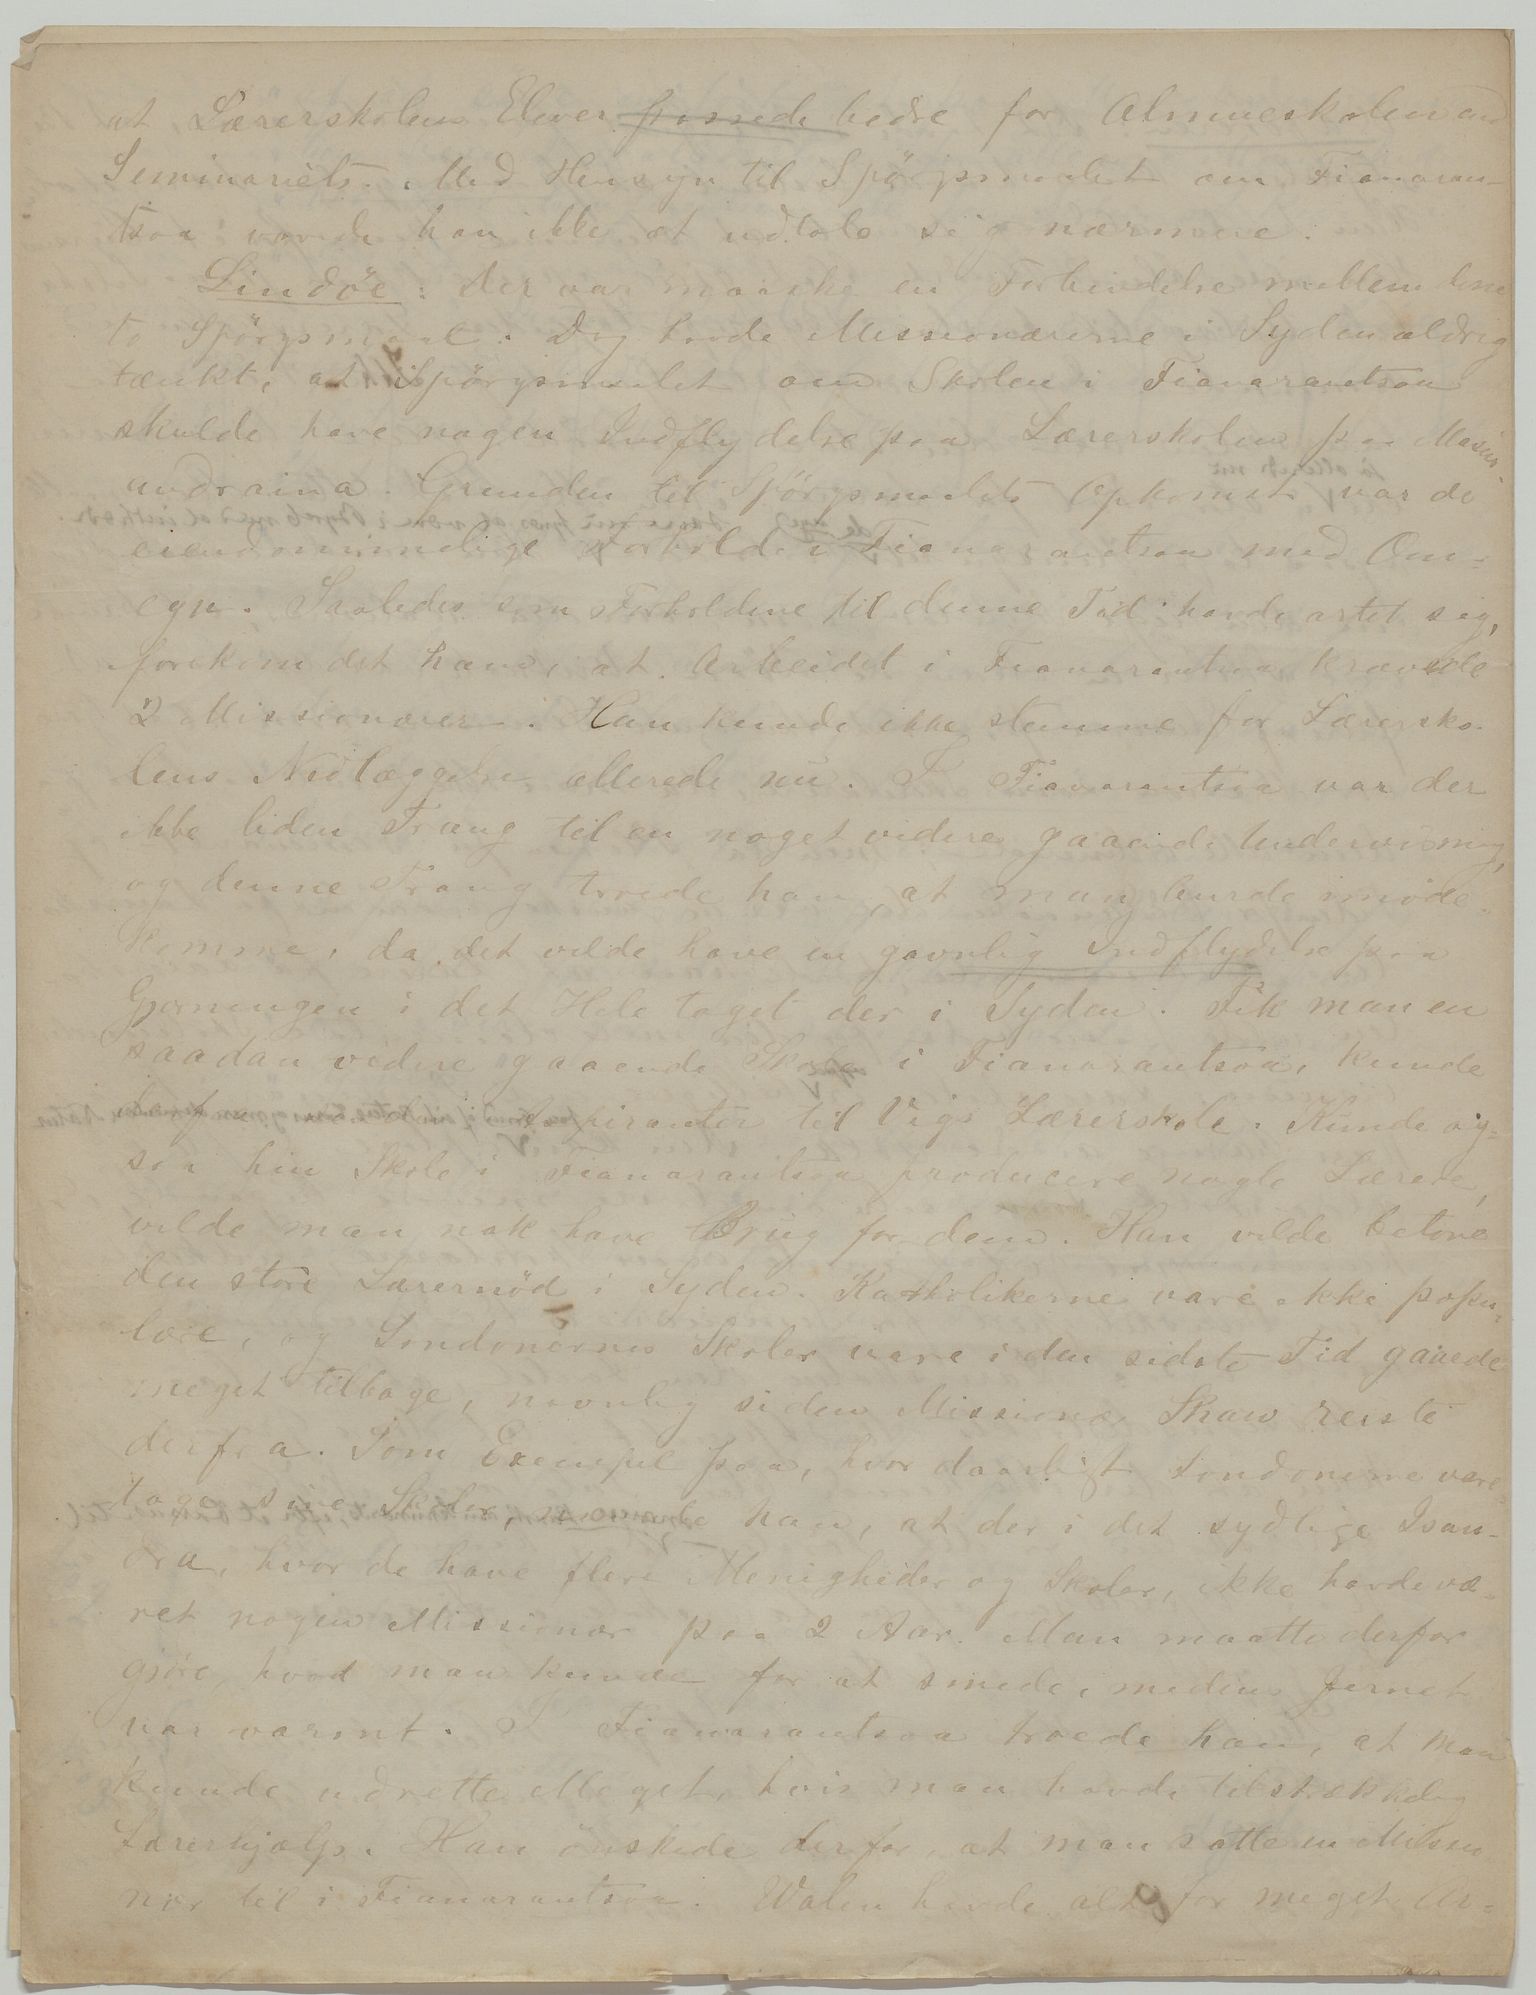 at Lærerskolens Elever passede bedre for Almueskolen end
Seminariets. Med Hensyn til Spörgsmaalet om Fianaran-
tsoa vovede han ikke at udtale sig nærmere.
Lindöe: Der var maaske en Forbindelse mellem disse
to Spörgsmaal. Dog havde Missionærerne i Syden aldrig
tænkt, at Spörgsmaalet om Skolen i Fianarantsoa
skulde have nogen Indflydelse paa Lærerskolen paa Masin-
andraina. Grunden til Spörgsmaalets Opkomst var de
eiendommelige Forholde i Fianarantsoa med Om-
egn. Saaledes som Forholdene til denne Tid havde artet sig,
forekom det ham, at Arbeidet i Fianarantsoa krævede
2 Missionærer. Han kunde ikke stemme for Lærersko-
lens Nedlæggelse allerede nu. I Fianarantsoa var der
ikke liden Trang til en noget videre gaaende Undervisning,
og denne Trang troede han, at man burde imöde-
komme, da det vilde have en gavnlig Indflydelse paa
Gjerningen i det Hele taget der i Syden. Fik man en
saadan videre gaaende Skole i Fianarantsoa, kunde
den Aspiranter til Vigs Lærerskole. Kunde og-
saa hin Skole i Fianarantsoa producere nogle Lærere,
vilde man nok have Brug for dem. Han vilde betone
den store Lærernöd i Syden. Katholikerne vare ikke popu-
lære, og Londonernes Skoler vare i den sidste Tid gaaede
meget tilbage, navnlig siden Missionær Shaw reiste
derfra. Som Exempel paa, hvor daarligt Londonerne vare-
tage sine Skoler, nævnte han, at der i det sydlige Isan-
dra, hvor de have flere Menigheder og Skoler, ikke havde væ-
ret nogen Missionær paa 2 Aar. Man maatte derfor
gjöre, hvad man kunde for at smede, medens Jernet
var varmt. I Fianarantsoa troede han, at man
kunde udrette Meget, hvis man havde tilstrækkelig
Lærerhjælp. Han önskede derfor, at man satte en Missio-
nær til i Fianarantsoa. Walen havde alt for meget Ar-